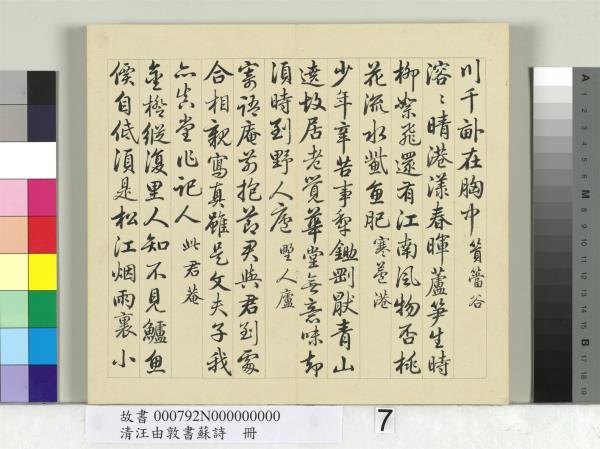 川千畝在胸中 篔簹谷
溶〻晴港漾春暉蘆笋生時
柳絮飛還有江南風物否桃
花流水鮆魚肥 寒蘆港
少年辛苦事犁鋤剛厭青山
遶故居老覺華堂無意味却
須時到野人廬 野人廬
寄語庵前抱節君與君到處
合相親寫真雖是文夫子我
亦真堂作記人 此君菴
金橙縱復里人知不見鱸魚
價自低須是松江烟雨裏小
故書 000792N000000000
清汪由敦書蘇詩 冊
7